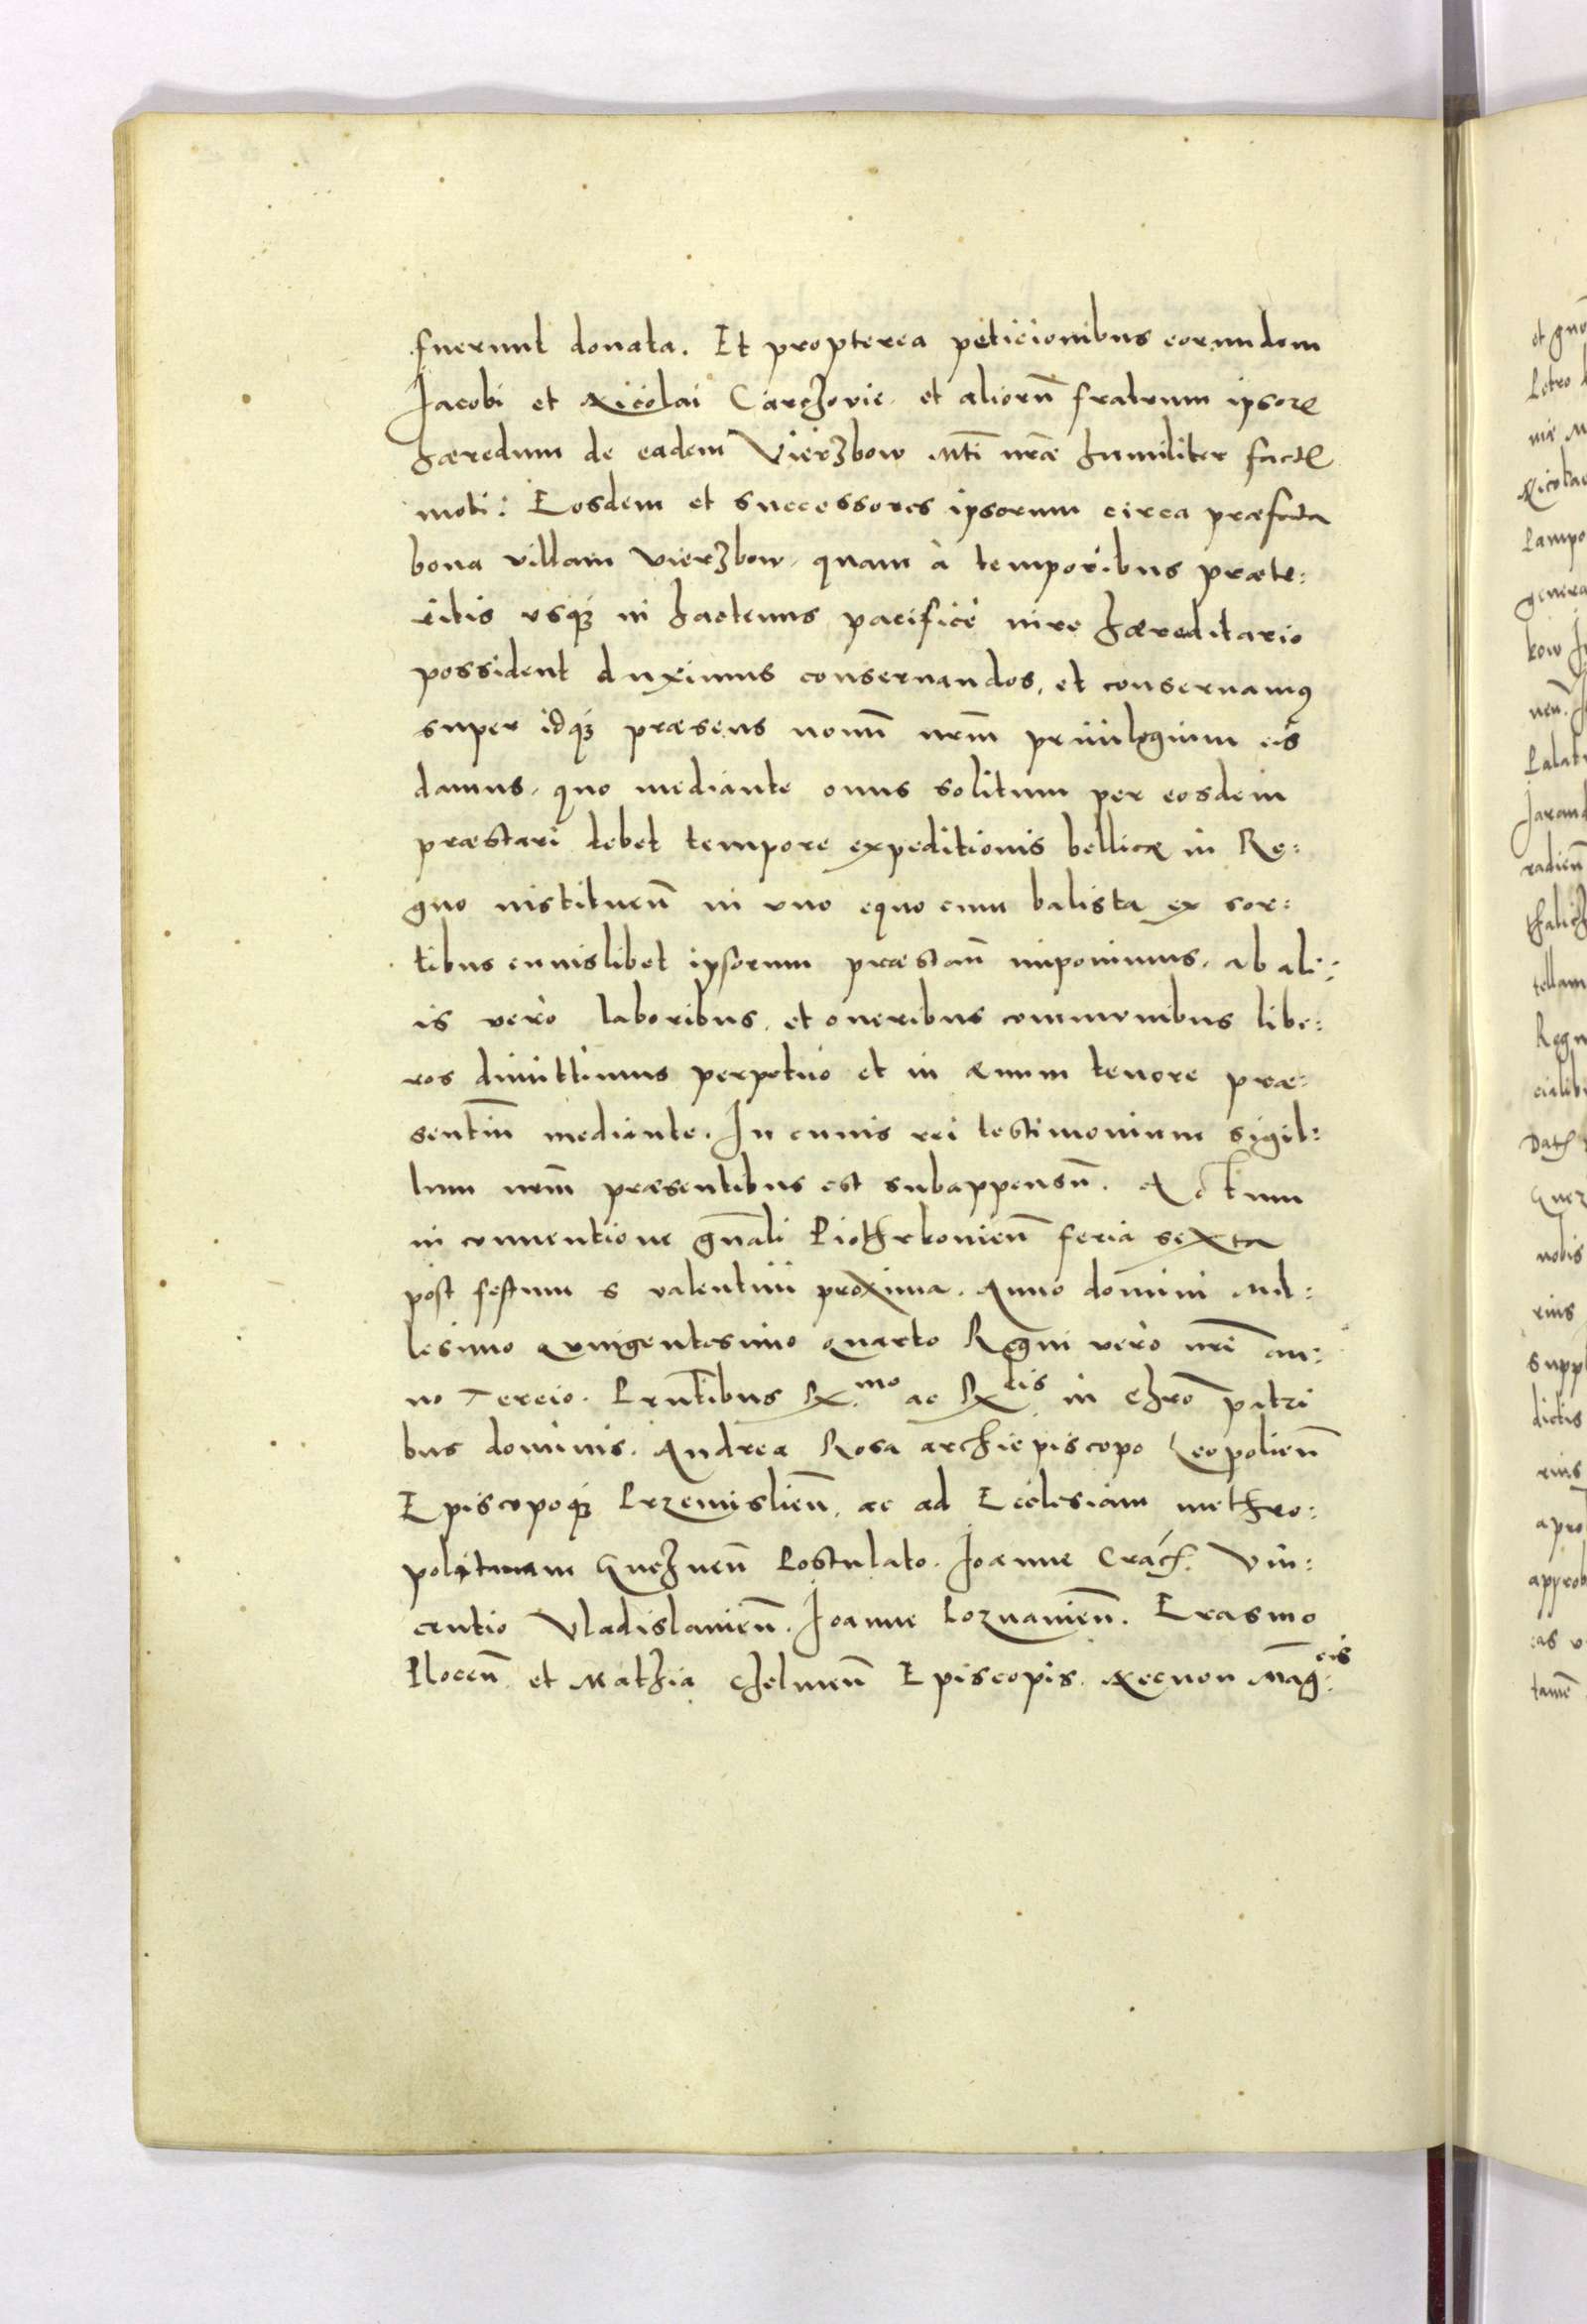 fuerunt donata. Et propterea peticionibus eorundem
Jacobi et Nicolai Carchovie. et aliorũ fratrum ipsorꝝ
hæredum de eadem Vierzbow Mti nræ humiliter factꝭ
moti: Eosdem et successores ipsorum circa præfata
bona villam vierzbow, quam à temporibus præte:
ritis vsqꝫ in hactenus pacificè iure hæreditario
possident duximus conseruandos, et conseruamꝰ
super idqꝫ præsens nouũ nrm̃ priuilegium eis
damus, quo mediante onus solitum per eosdem
præstari debet tempore expeditionis bellicæ in Re:
gno instituen̄ in vno equo cum balista ex sor:
tibus cuiuslibet ipsorum præstan̄ imponimus, ab ali:
is verò laboribus, et oneribus communibus libe:
ros dimittimus perpetuò et in æuum tenore præ:
sentiũ mediante. In cuius rei testimonium sigil:
lum nrm̃ præsentibus est subappensũ. Actum
in conuentione gñali Piothrkouien̄ feria sexta
post festum s valentini proxima. Anno domini Mil:
lesimo Quingentesimo Quarto Regni verò nrĩ an:
no Tercio. Prñtibus Rx.mo ac Rxdis in Chrõ patri
bus dominis. Andrea Rosa archiepiscopo Leopolien̄
Episcopoqꝫ Przemislien̄, ac ad Ecclesiam methro:
politanam Gneznen̄ Postulato. Joanne Cracͪ. Vin:
centio Vladislauien̄. Joanne Poznanien̄. Erasmo
Plocen̄ et Mathia Chelmen̄ Episcopis. Necnon Mãg.cis